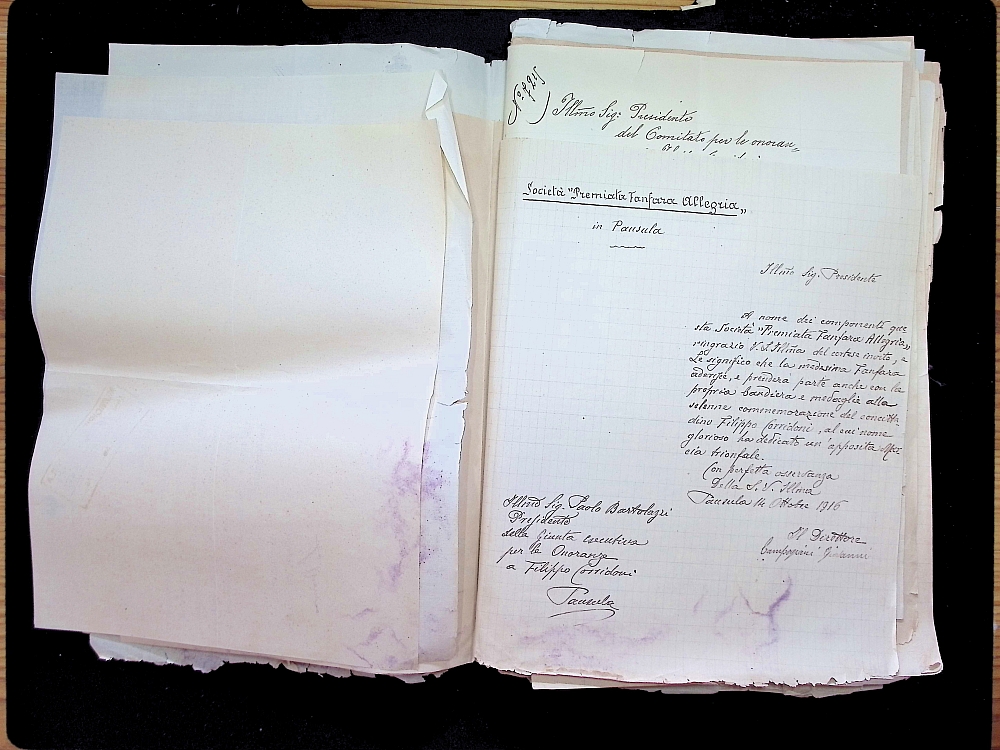 Illmo Sig: Presidente
del Comitato per le onoran„
Società "Premiata Fanfara Allegria„
in Pausula
Illmo Sig. Presidente
A nome dei componenti que
sta Società "Premiata Fanfara Allegria„
ringrazio V. S. Illma del cortese invito, e
Le significo che la medesima Fanfara
aderisce, e prenderà parte anche con la
propria bandiera e medaglie alla
solenne commemorazione del concitta
dino Filippo Corridoni, al cui nome
glorioso ha dedicato un'apposita Mar
cia trionfale.
Con perfetta osservanza
Della S. V. Illma
Pausula 14 Ottobre 1916
Il Direttore
Giovanni
Illmo Sig. Paolo Bartolazzi
Presidente
della Giunta esecutiva
per le Onoranze
a Filippo Corridoni
Pausula